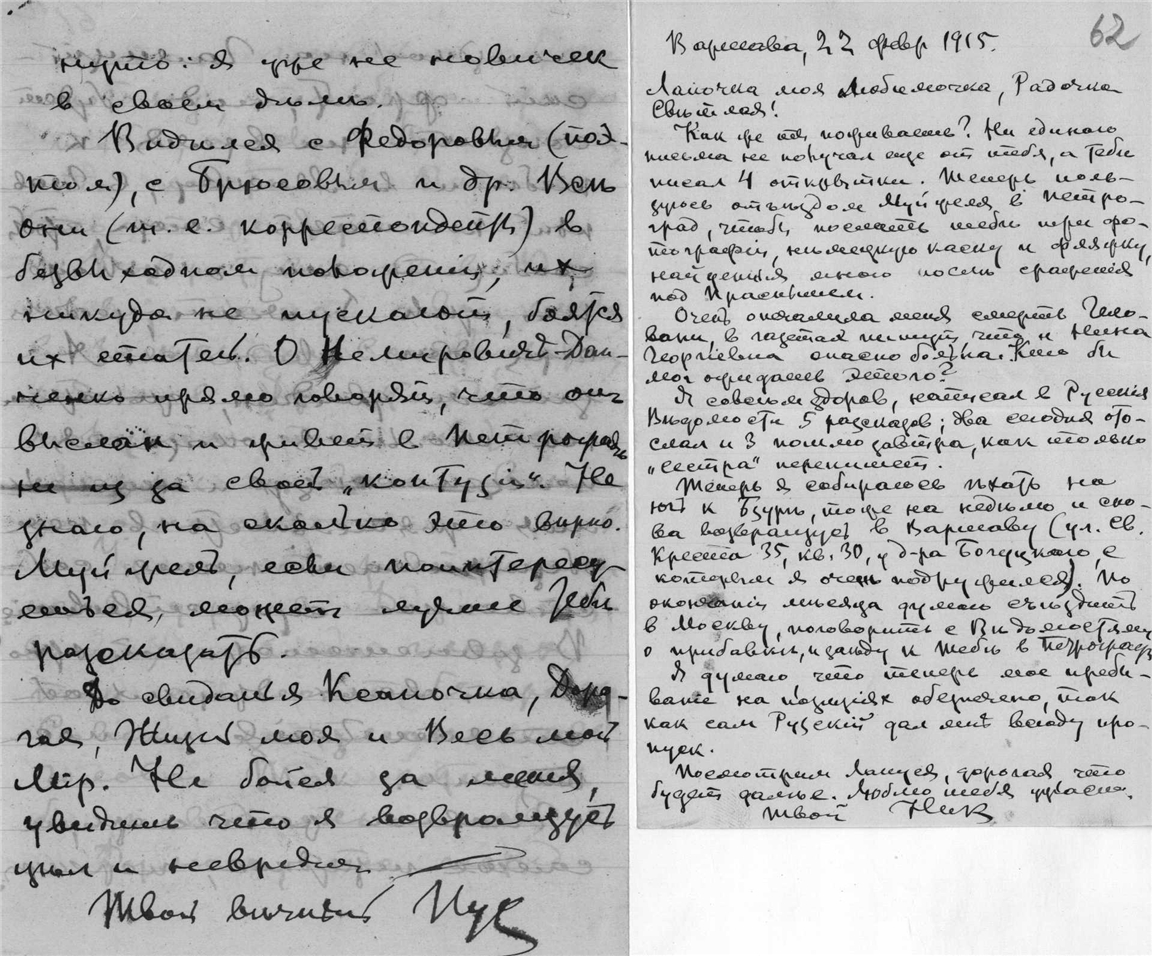 нуть: я уже не новичек
в своем дѣлѣ.
Видился с Федоровым (поэ-
том), с Брюсовым и др. Всѣ
они (т. е. корреспонденты) в
безвыходном положеніи, их
никуда не пускают, боятся
их статей. О Немировичѣ-Дан-
ченко прямо говорят, что он
выслан и живет в Петроградѣ
не из за своей „контузіи“. Не
знаю, на сколько это вѣрно.
Муйжель, если поинтересу-
ешься, может лучше Тебѣ
разсказать.
До свиданья Ксаночка, Доро-
гая, Жизнь моя и Весь мой
Мір. Не бойся за меня,
увидишь что я возвращусь
цѣл и невредим
Твой вѣчный
62
Варшава, 22 февр 1915.
Лапочка моя Любимочка, Радочка
Свѣтлая!
Как же ты поживаешь? Ни единаго
письма не получал еще от тебя, а Тебѣ
писал 4 открытки. Теперь поль-
зуюсь отъѣздом Муйжеля в Петро-
град, чтобы послать тебѣ при фо-
тографіи, нѣмецкую каску и фляжку,
найденныя мною послѣ сраженія
под Праснышем.
Очень опечалила меня смерть Чело-
вани, в газетах пишут что и Нина
Георгіевна опасно больна. Кто бы
мог ожидать этого?
Я совсѣм здоров, написал в Русскія
Вѣдомости 5 разсказов; два сегодня ото-
слал и 3 пошлю завтра, как только
„сестра“ перепишет.
Теперь я собираюсь ѣхать на
юг к Бзурѣ, тоже на недѣлю и сно-
ва возвращусь в Варшаву (ул. Св.
Креста 35, кв. 30, у д-ра Богуцкаго, с
которым я очень подружился). По
окончаніи мѣсяца думаю съѣздить
в Москву, поговорить с Вѣдомостями
о прибавкѣ, и заѣду к Тебѣ в Петроград.
Я думаю что теперь мое пребы-
ваніе на позиціях обезпечено, так
как сам Рузскій дал мнѣ всюду про-
пуск.
Посмотрим Лапуся, дорогая, что
будет дальше. Люблю тебя ужасно.
Твой Ник